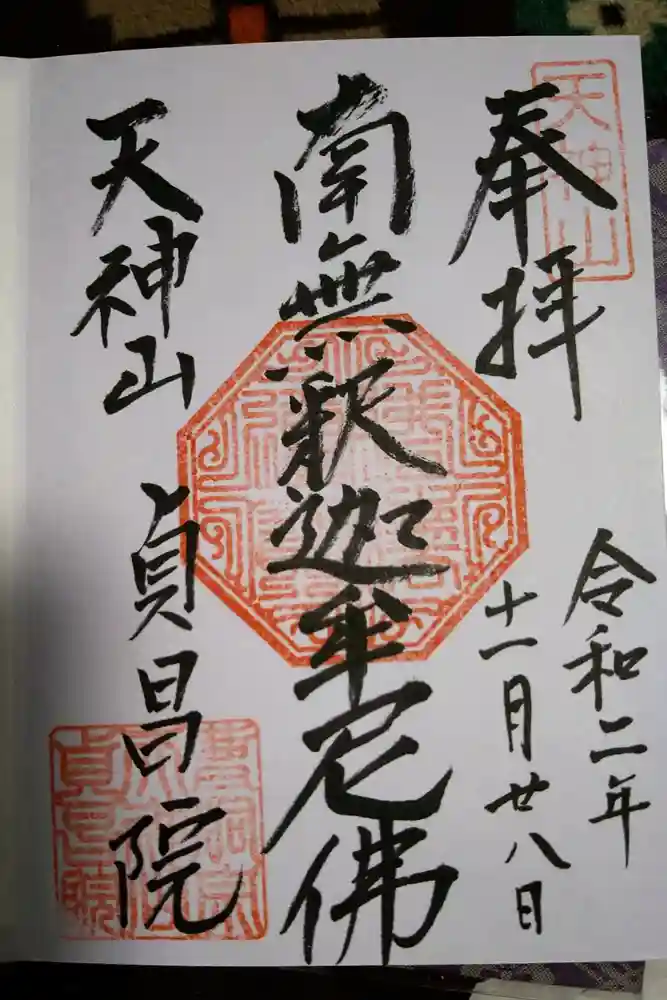 天神山
奉拝
令和二年
十一月廿八日
南無釈迦牟尼佛
天神山
貞昌院
貞昌院